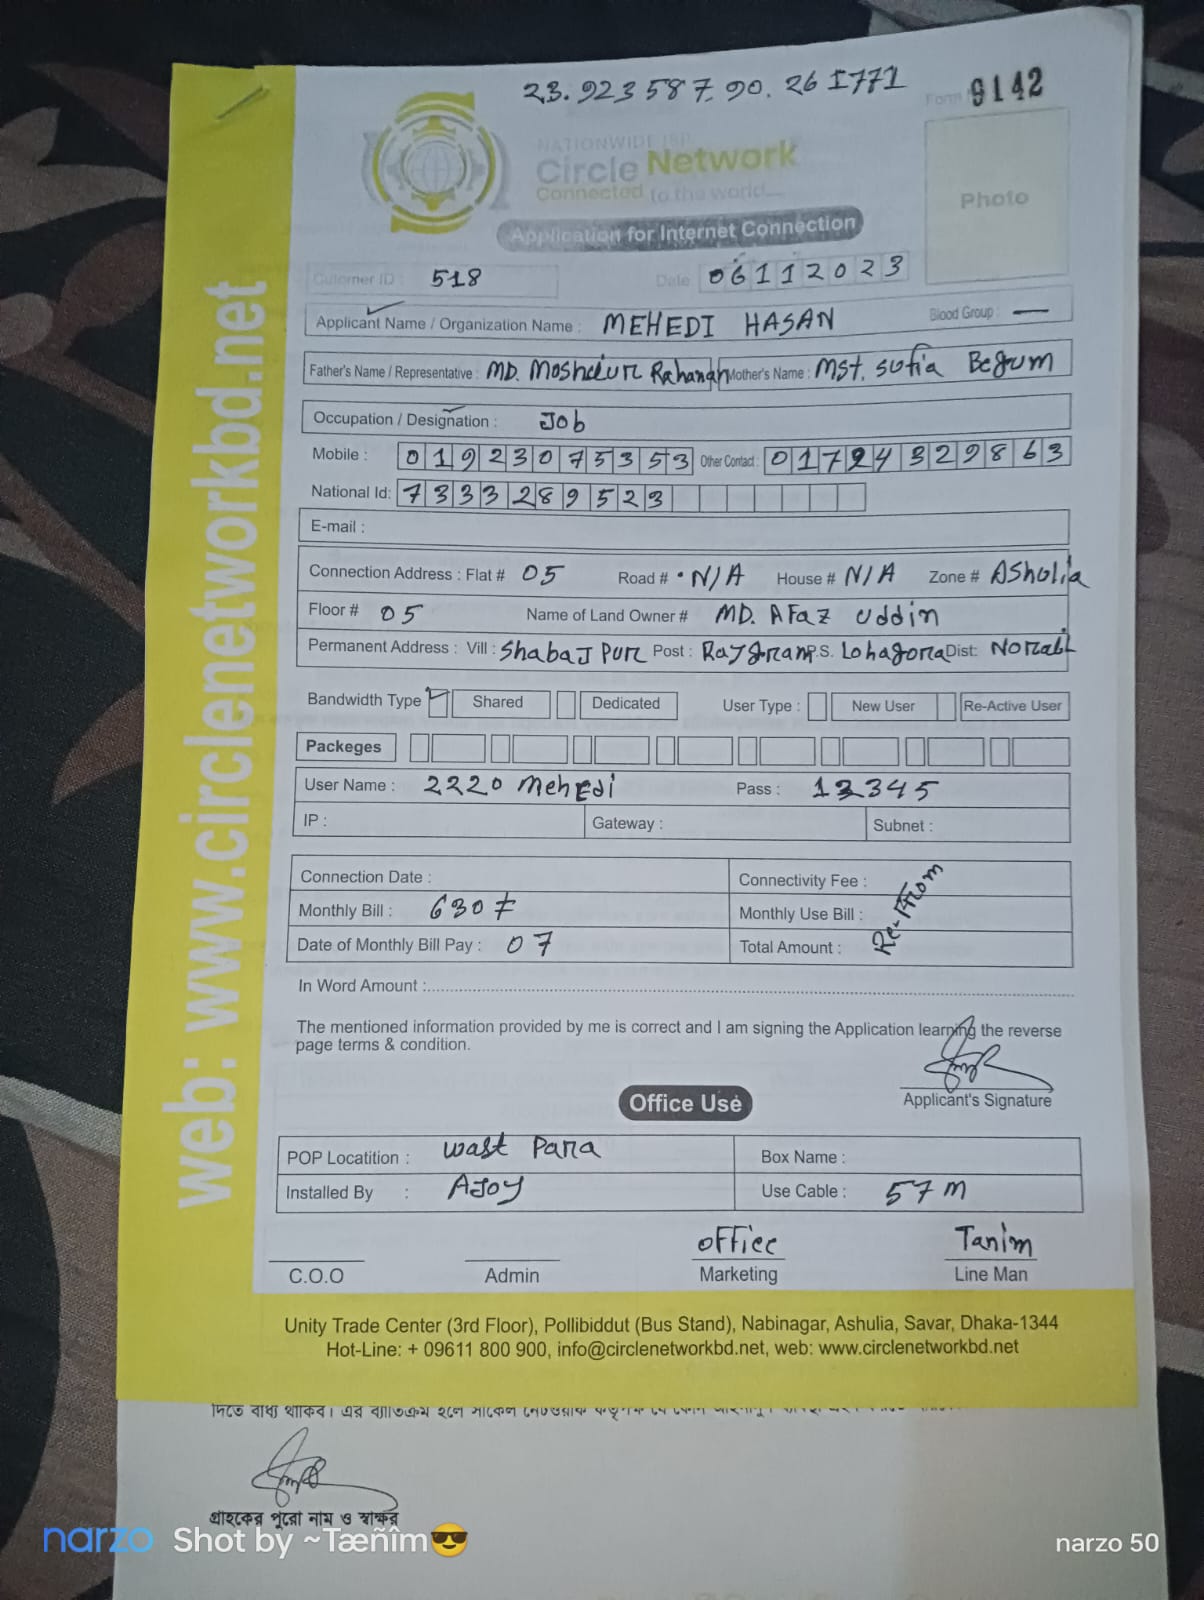 23.923587.90.261771
Form 9142
NATIONWIDE ISP
Circle Network
Connected to the world....
Photo
Application for Internet Connection
Cutomer ID : 518 Date 06112023
Applicant Name / Organization Name : MEHEDI HASAN Blood Group : —
Father's Name / Representative : MD. Mosheiur Rahaman Mother's Name : MST. Sufia Begum
Occupation / Designation : Job
Mobile : 01923075353 Other Contact : 01724329863
National Id: 7333289523
E-mail :
Connection Address : Flat # 05 Road # N/A House # N/A Zone # Ashulia
Floor # 05 Name of Land Owner # MD. Afaz Uddin
Permanent Address : Vill : Shabaj Pur Post : Raygram P.S. Lohagora Dist: Norail
Bandwidth Type Shared Dedicated User Type : New User Re-Active User
Packeges
User Name : 2220 Mehedi Pass : 12345
IP : Gateway : Subnet :
Connection Date : Connectivity Fee :
Monthly Bill : 630 Monthly Use Bill :
Date of Monthly Bill Pay : 07 Total Amount :
In Word Amount :
The mentioned information provided by me is correct and I am signing the Application learning the reverse
page terms & condition.
Applicant's Signature
Office Use
POP Locatition : wast Para Box Name :
Installed By : AJoy Use Cable : 57 m
office Tanim
C.O.O Admin Marketing Line Man
Unity Trade Center (3rd Floor), Pollibiddut (Bus Stand), Nabinagar, Ashulia, Savar, Dhaka-1344
Hot-Line: + 09611 800 900, info@circlenetworkbd.net, web: www.circlenetworkbd.net
web: www.circlenetworkbd.net
দিতে বাধ্য থাকিব। এর ব্যতিক্রম হলে সার্কেল নেটওয়ার্ক
গ্রাহকের পুরো নাম ও স্বাক্ষর
narzo Shot by ~Tæñîm😎 narzo 50